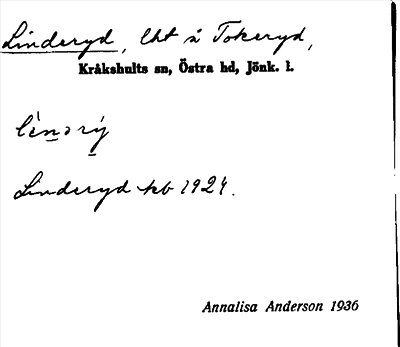 Linderyd, lht i Tokeryd,
Kråkshults sn, Östra hd, Jönk. l.
lènǝrý
Linderyd kb 1924.
Annalisa Anderson 1936